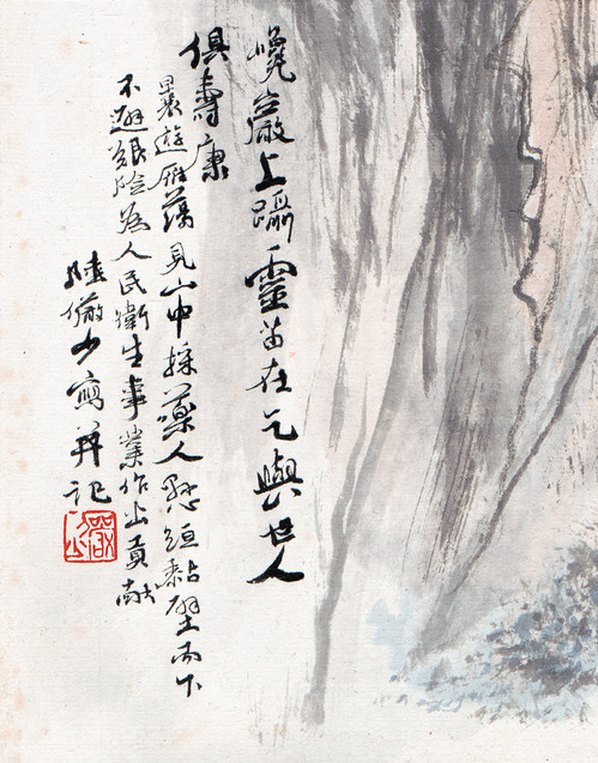 巉巖上躡靈苗在乞與世人
俱壽康
曩遊雁蕩見山中採藥人懸絙黏壁而下
不避艱險為人民衛生事業作出貢獻
陸儼少寫并記